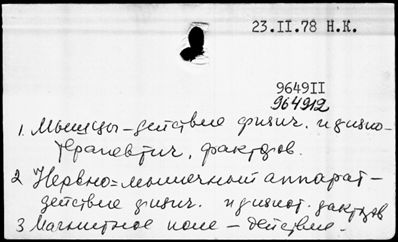 23.II.78 Н.К.
9649II
964912
1. Мышцы – действие физич. и физио-
терапевтич. факторов.
2 Нервно=мышечный аппарат –
действие физич. и физиот. факторов
3 Магнитное поле – действие.